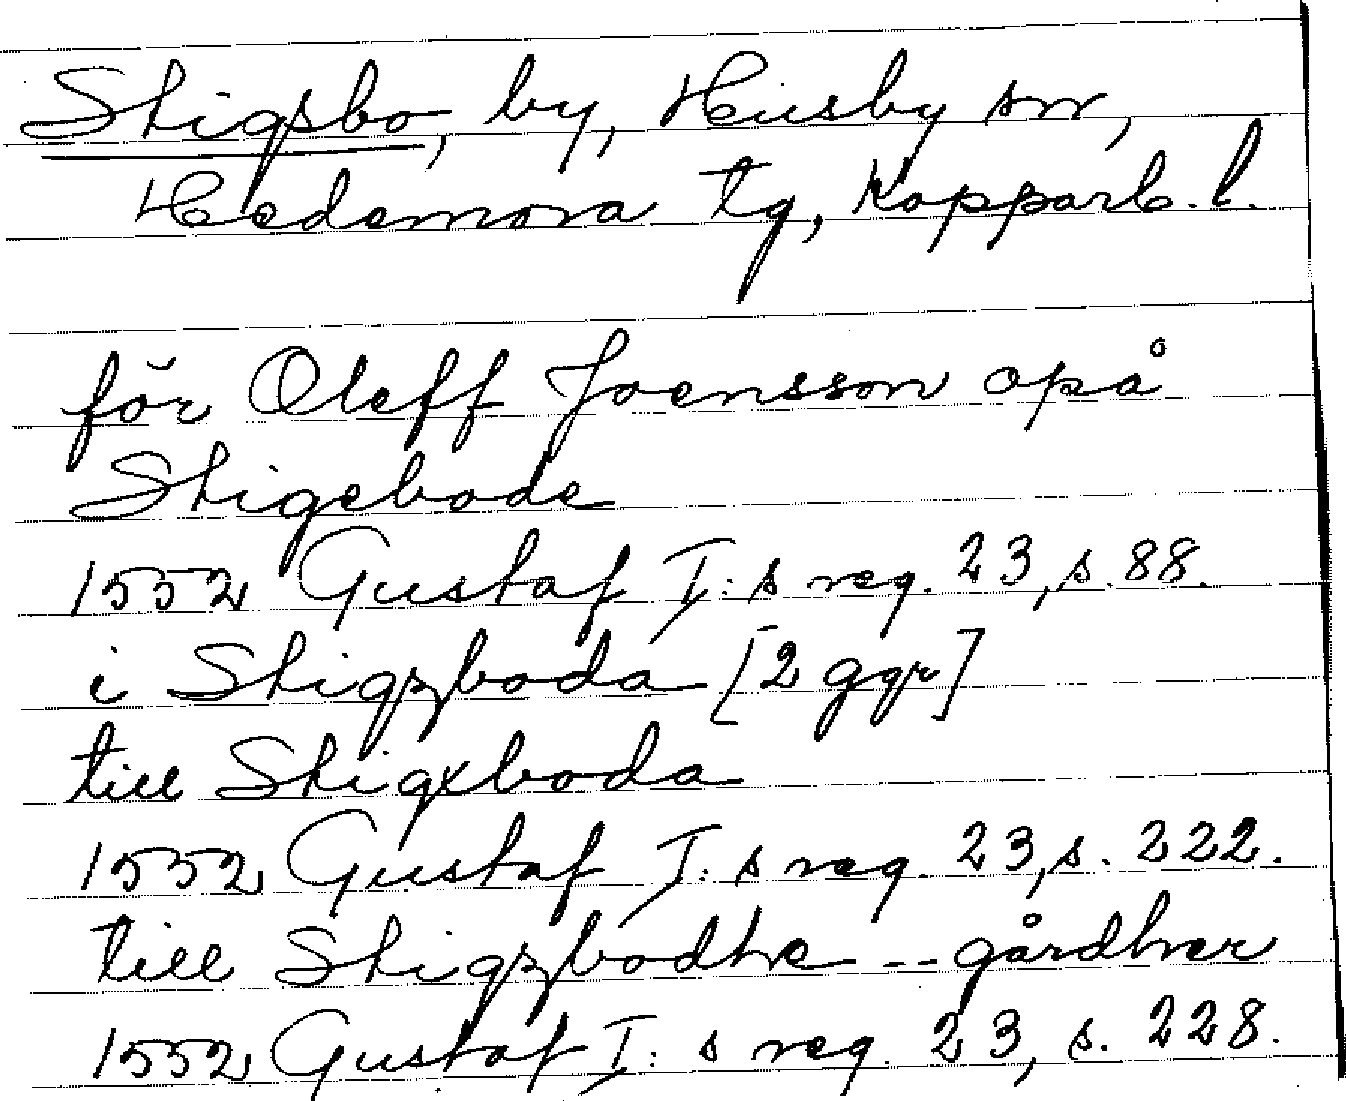 Stigsbo, by, Husby sn,
Hedemora tg, Kopparb. l.
för Oleff Joensson opå
Stigebode
1552 Gustaf I:s reg. 23, s. 88.
i Stigzboda [2 ggr]
till Stigxboda
1552 Gustaf I:s reg. 23, s. 222.
till Stigzbodhe -- gårdher
1552 Gustaf I:s reg. 23, s. 228.